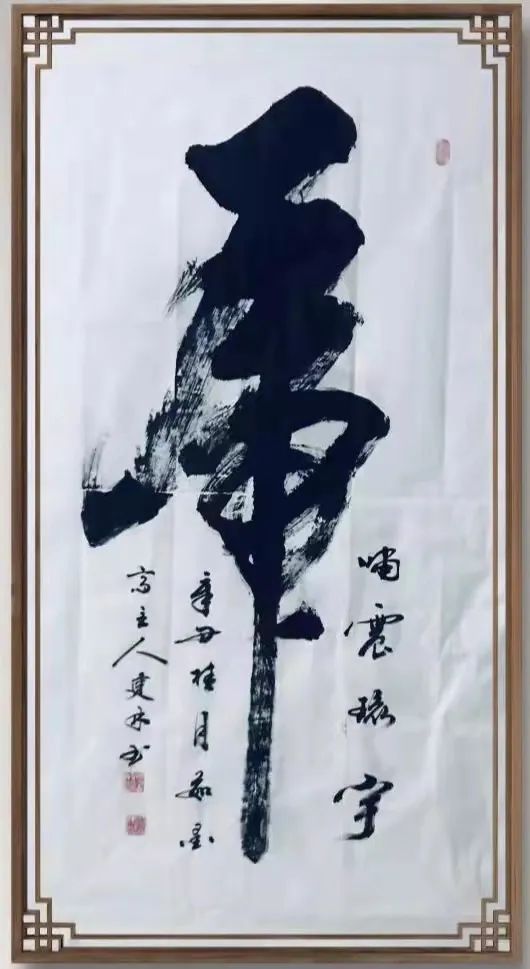 虎
啸震環宇
辛丑桂月茹墨
斋主人建林书